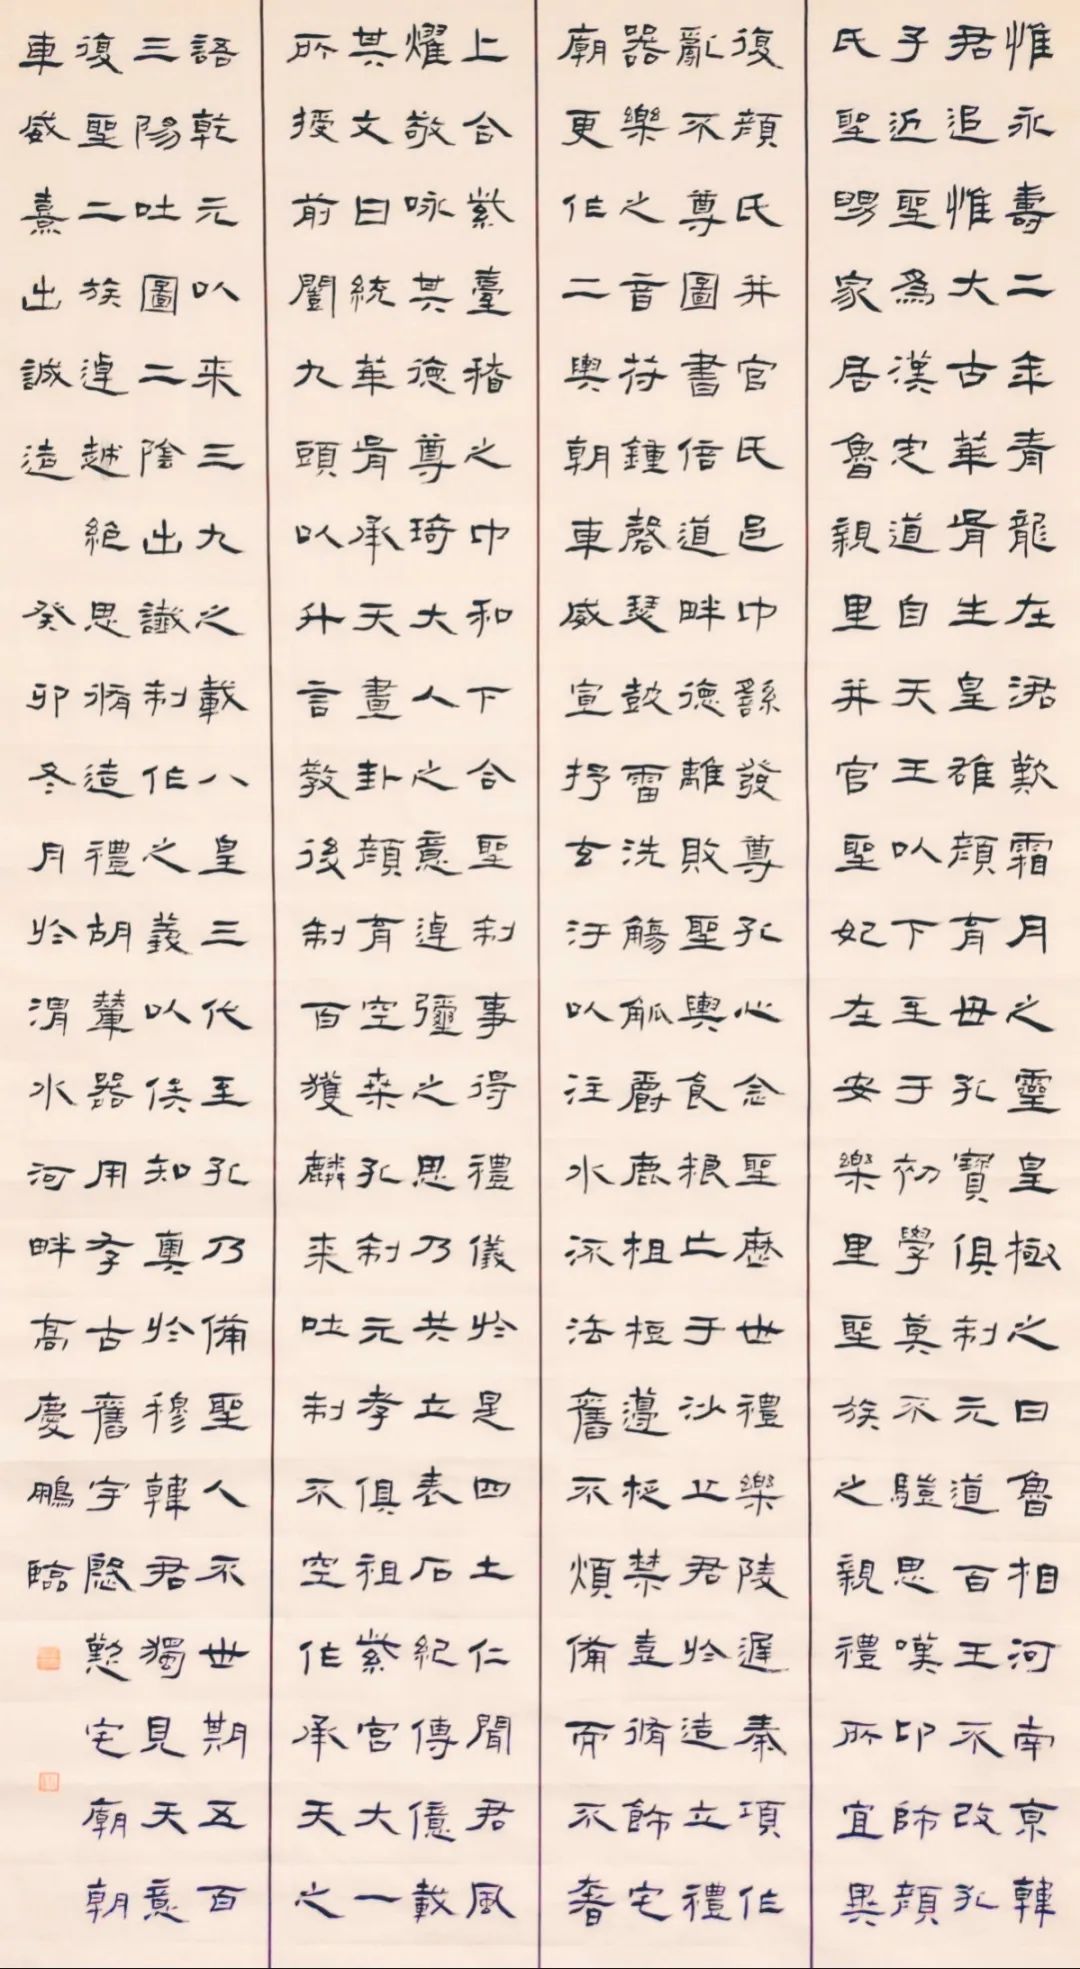 惟永壽二年青龍在涒歎霜月之靈皇極之日魯相河南京韓
君追惟大古華胥生皇雄顏育毋孔寶俱制元道百王不改孔
子近聖為漢定道自天王以下至于初學莫不騩思嘆卬師顏
氏聖舅家居魯親里并官聖妃在安樂里聖族之親禮所宜異
復顏氏并官氏邑中繇發尊孔心念聖歷世禮樂陵遲秦項作
亂不尊圖書倍道畔德離敗聖輿食糧亡于沙丘君於造立禮
器樂之音符鍾磬瑟鼓雷洗觴觚爵鹿柤梪籩柉禁壴脩飾宅
廟更作二輿朝車威宣抒玄汙以注水流法舊不煩備而不奢
上合紫臺稽之中和下合聖制事得禮儀於是四土仁聞君風
燿敬咏其德尊琦大人之意逴彌之思乃共立表石紀傳億載
其文曰統華胥承天畫卦顏育空桑孔制元孝俱祖紫宮大一
所授前闓九頭以升言教後制百獲麟來吐制不空作承天之
語乾元以來三九之載八皇三代至孔乃備聖人不世期五百
三陽吐圖二陰出讖制作之義以俟知奧於穆韓君獨見天意
復聖二族逴越絕思脩造禮胡輦器用存古舊宇殷懃宅廟朝
車威熹出誠造 癸卯冬月於渭水河畔高慶鵬臨